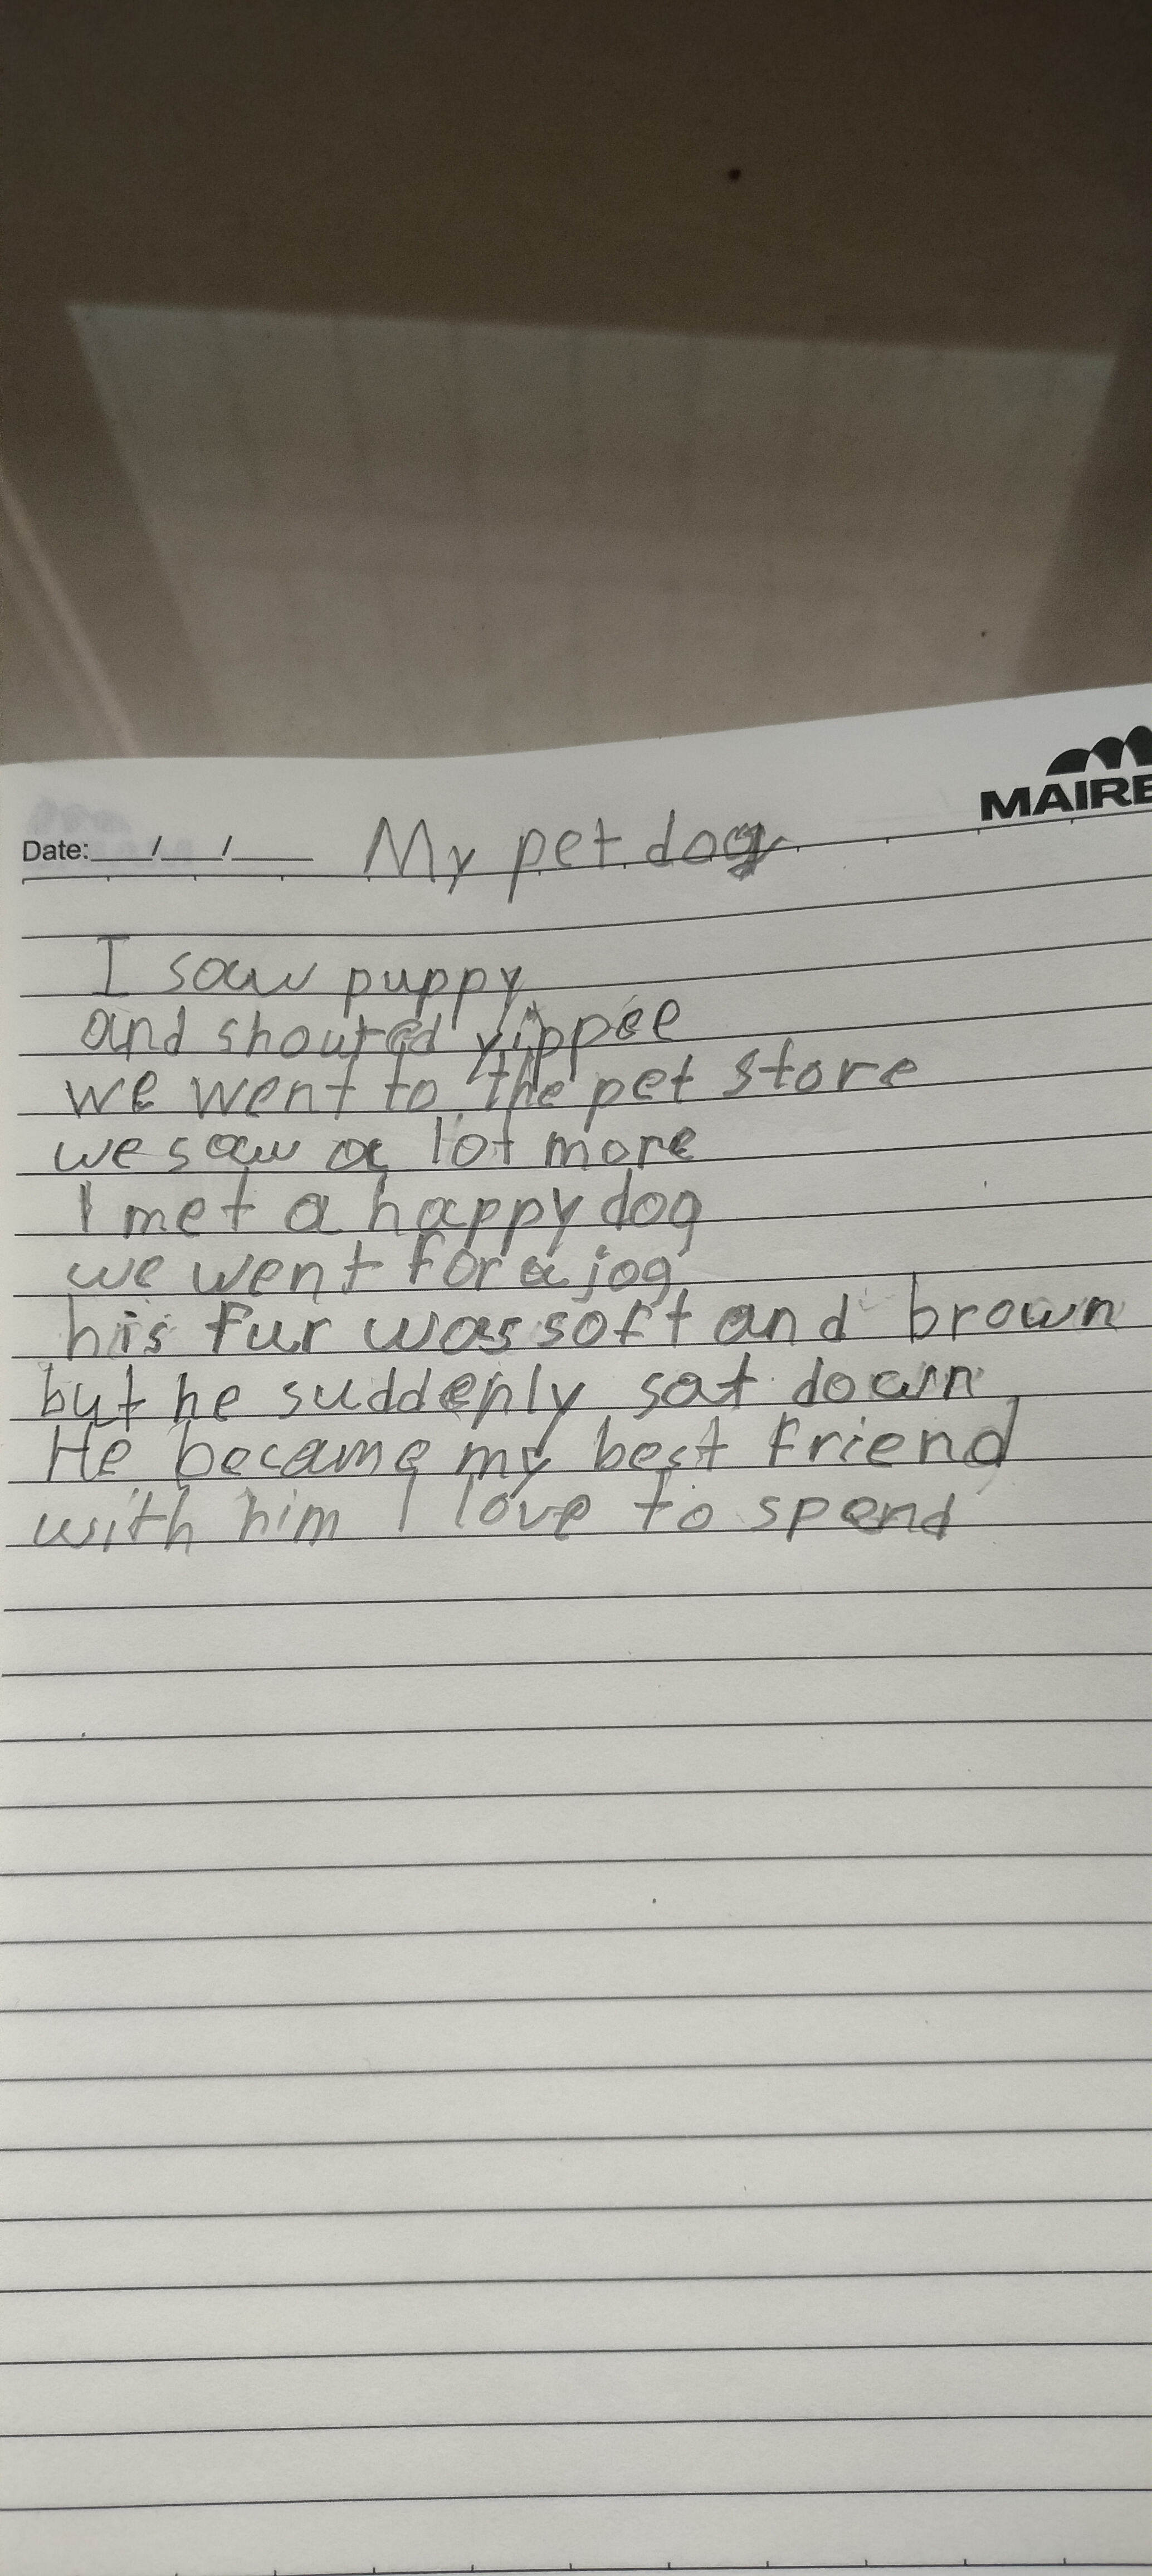 MAIRE
Date:___/___/___ My pet dog
I saw puppy
and shouted yippee
we went to the pet store
we saw a lot more
I met a happy dog
we went for a jog
his fur was soft and brown
but he suddenly sat down
He became my best friend
with him I love to spend